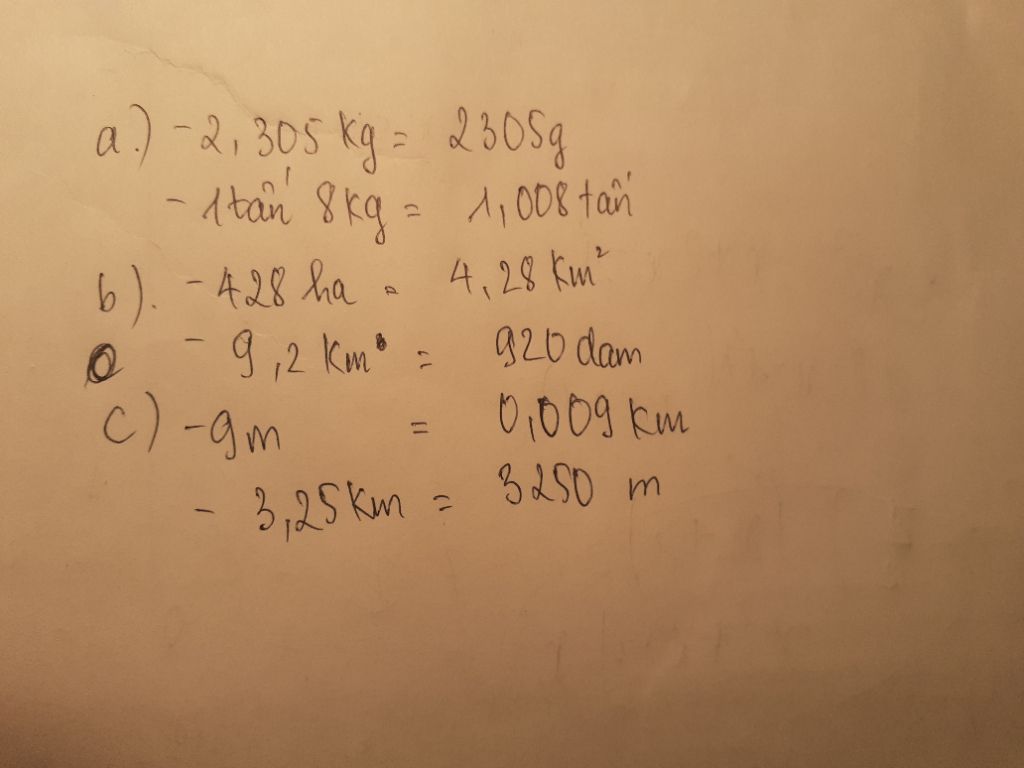 a.) - 2,305 kg = 2305g
- 1 tấn 8kg = 1,008 tấn
b). - 428 ha = 4,28 km²
- 9,2 km = 920 dam
c) - 9m = 0,009 km
- 3,25 km = 3250 m